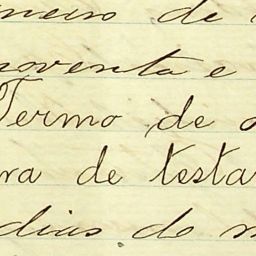 meiro de
noventa e
Termo de
ra de testa
dias do m